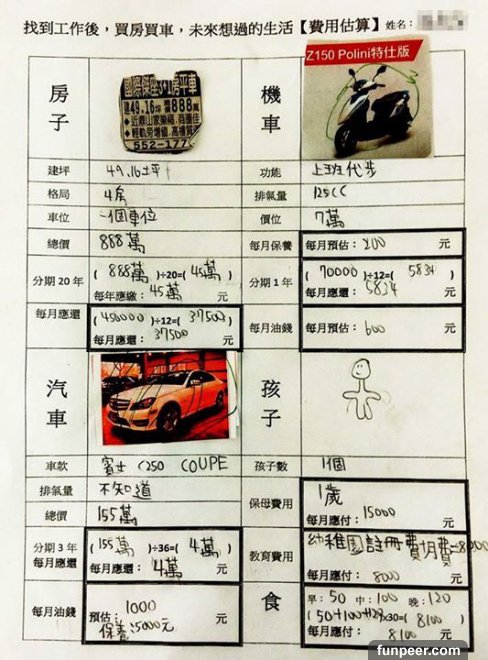 找到工作後，買房買車，未來想過的生活【費用估算】 姓名：
房子
國際傑座3+1房平車
建49.16坪 售888萬
近壽山家樂福，商圈佳
輕軌旁增值，高樓質
552-177
建坪 49.16坪
格局 4房
車位 一個車位
總價 888萬
分期 20 年 ( 888萬 )÷20=( 45萬 )
每年應繳： 45萬 元
每月應還 ( 450000 )÷12=( 37500 )
每月應還： 37500 元
機車
Z150 Polini特仕版
功能 上班代步
排氣量 125CC
價位 7萬
每月保養 每月預估： 200 元
分期 1 年 ( 70000 )÷12=( 5834 )
每月應還： 5834 元
每月油錢 每月預估： 600 元
汽車
車款 賓士 C250 COUPE
排氣量 不知道
總價 155萬
分期 3 年 每月應還 ( 155萬 )÷36=( 4萬 )
每月應還： 4萬 元
每月油錢 預估： 1000 元
保養：5000元
孩子
孩子數 1個
保母費用 1歲
每月應付： 15000 元
教育費用 幼稚園註冊費月費=8000
每月應付： 8000 元
食
早：50 中：100 晚：120
(50+100+120)x30=( 8100 )
每月應付： 8100 元
funpeer.com